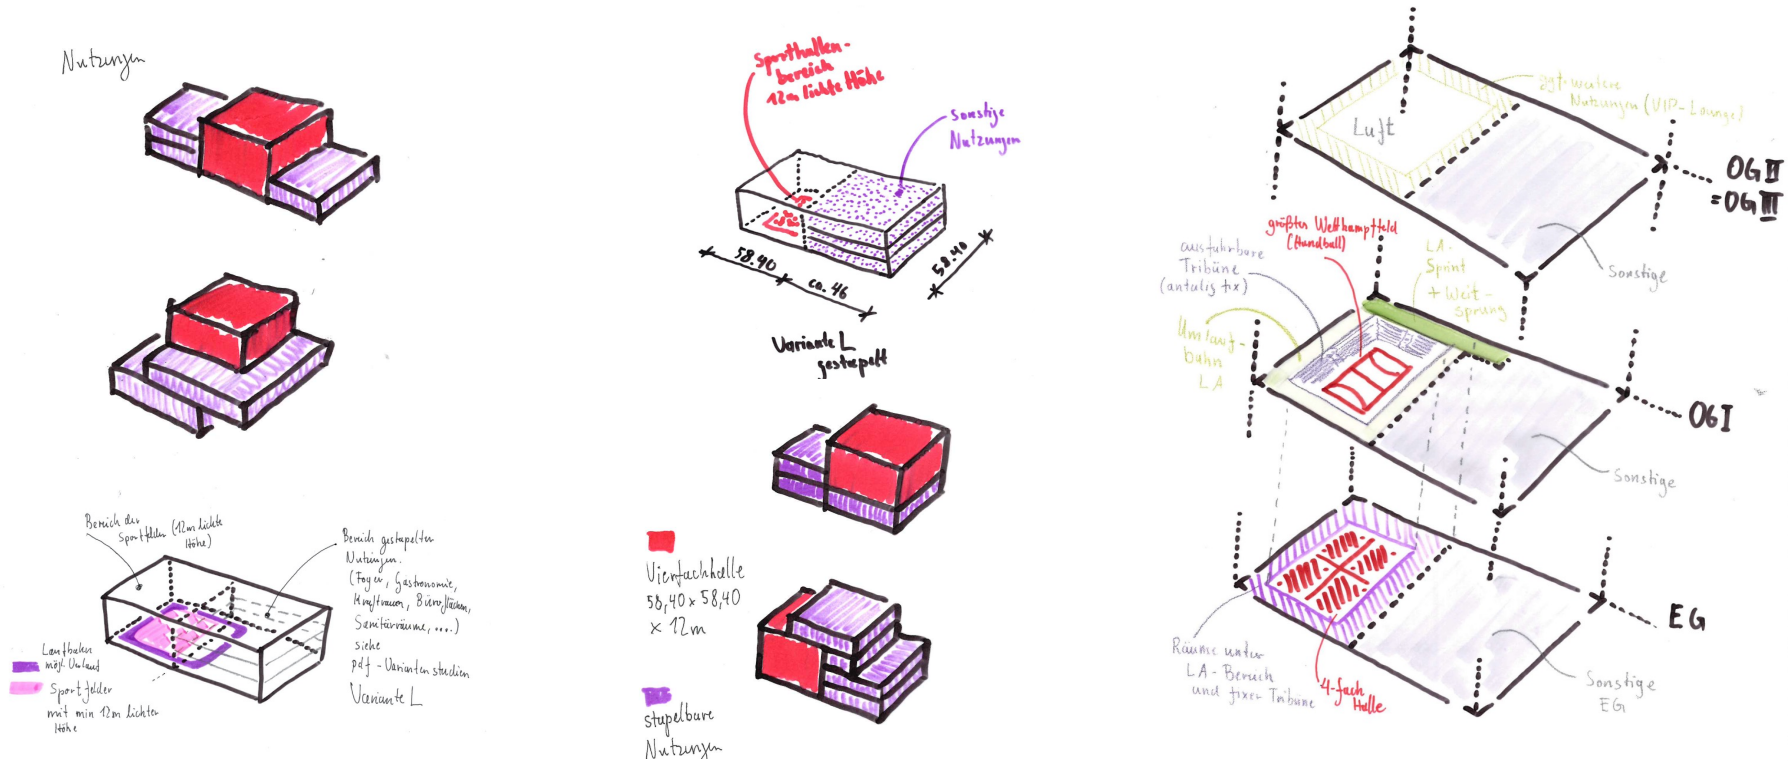 Nutzungen
Bereich der
Sportfelder (12m lichte
Höhe)
Bereich gestapelter
Nutzungen.
(Foyer, Gastronomie,
Kraftraum, Büroflächen,
Sanitärräume, ....)
siehe
pdf - Variantenstudien
Variante L
Laufbahn
mögl. Umlauf
Sportfelder
mit min 12m lichter
Höhe
Sporthallen-
bereich
12m lichte Höhe
Sonstige
Nutzungen
58.40
ca. 46
58.40
Variante L
gestapelt
Vierfachhalle
58,40 x 58,40
x 12m
stapelbare
Nutzungen
ggf. weitere
Nutzungen (VIP-Lounge)
Luft
OG II
= OG III
Sonstige
größtes Wettkampffeld
(Handball)
ausfahrbare
Tribüne
(anteilig fix)
LA-
Sprint
+ Weit-
sprung
Umlauf-
bahn
LA
OG I
Sonstige
EG
Räume unter
LA-Bereich
und fixer Tribüne
4-fach
Halle
Sonstige
EG